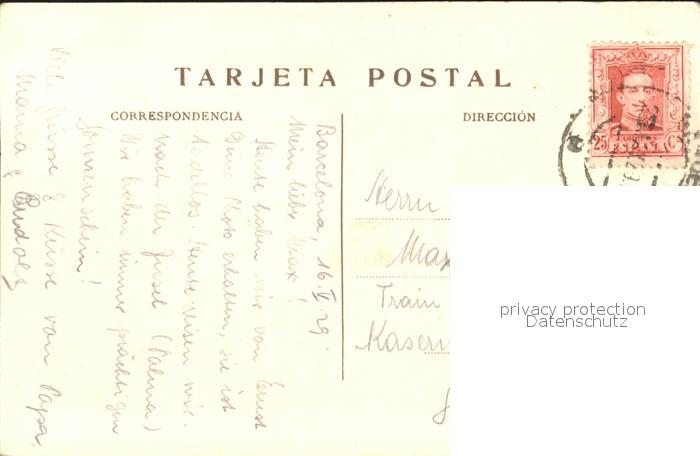 TARJETA POSTAL
CORRESPONDENCIA
DIRECCIÓN
25 Cs
ESPAÑA
Barcelona, 16. V. 29.
Mein lieber Max!
Heute haben wir von Ernst
Deine Photo erhalten, sie ist
tadellos. Heute reisen wir
nach der Insel (Palma)
Wir haben immer prächtigen
Sonnenschein!
Viele Grüsse & Küsse von Papa,
Mama &
Herrn
Max
Train
Kasern
privacy protection
Datenschutz